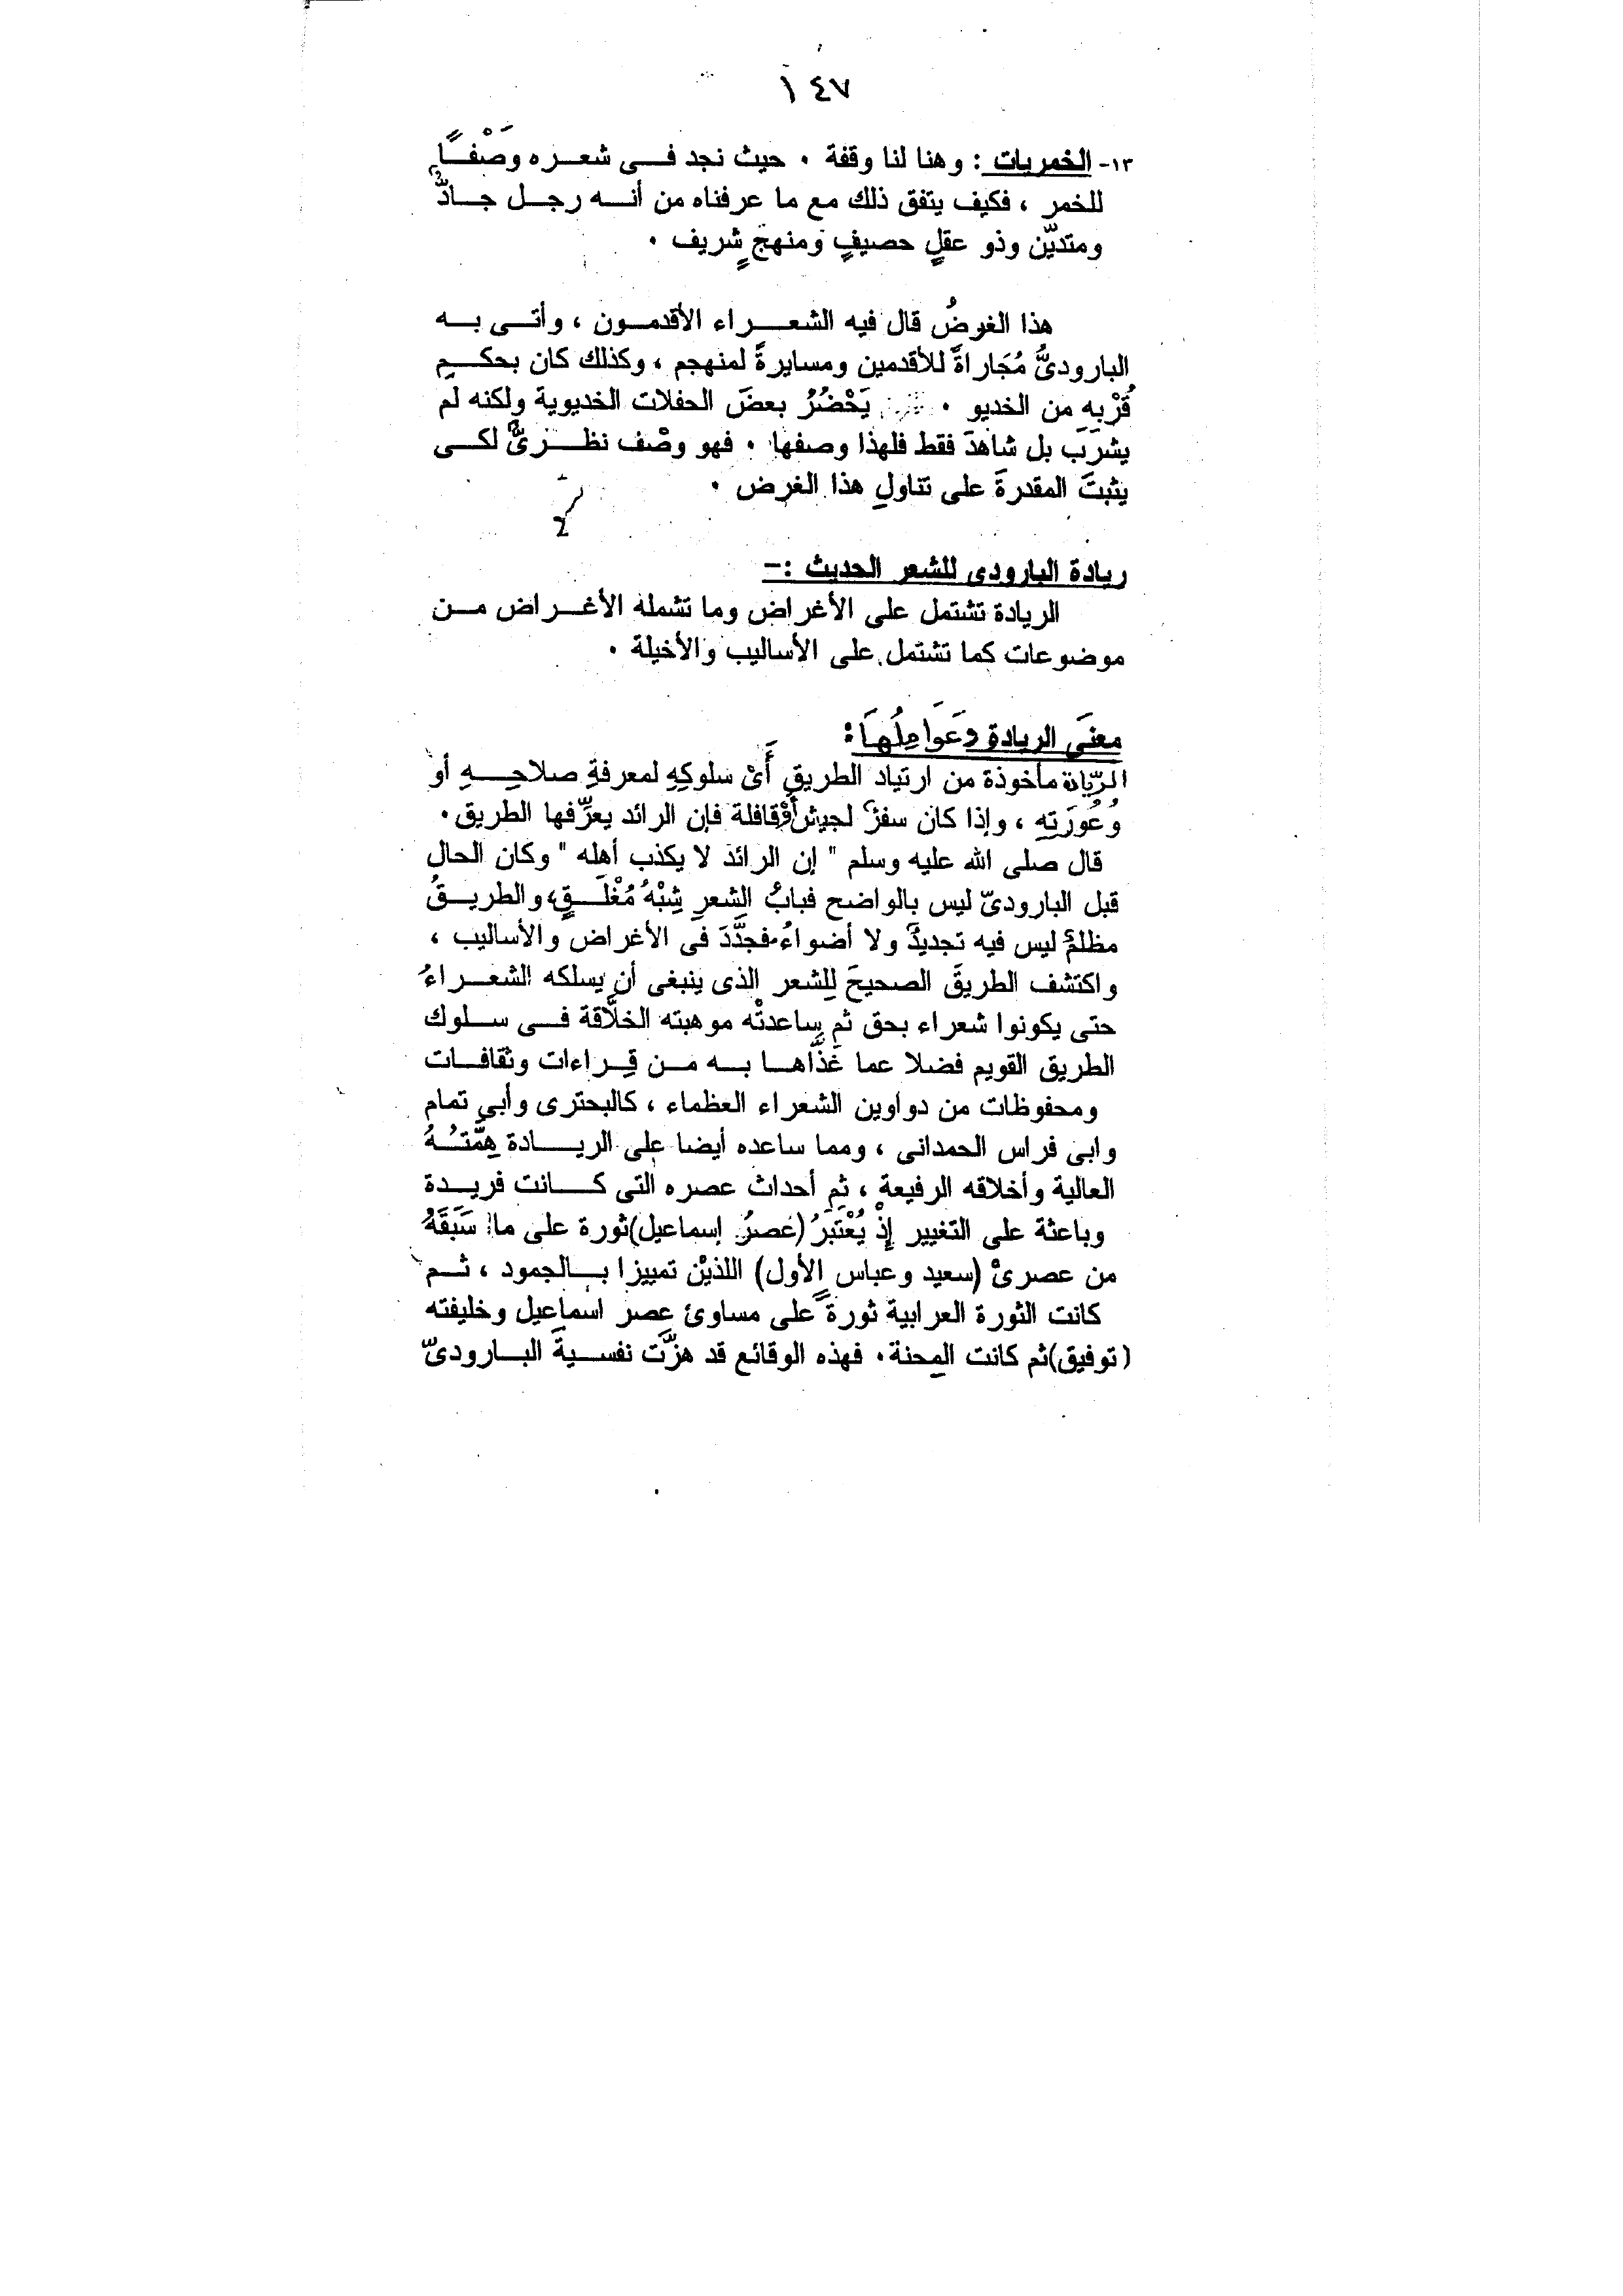 ١٤٧
١٣- الخمريات : وهنا لنا وقفة . حيث نجد فى شعره وَصْفًا
للخمر ، فكيف يتفق ذلك مع ما عرفناه من أنه رجل جادٌّ
ومتديّن وذو عقلٍ حصيفٍ ومنهجٍ شريف .
هذا الغرضُ قال فيه الشعراء الأقدمون ، وأتى به
البارودىُّ مُجَاراةً للأقدمين ومسايرةً لمنهجم ، وكذلك كان بحكمِ
قُرْبِهِ من الخديو . يَحْضُرُ بعضَ الحفلات الخديوية ولكنه لم
يشرَبَ بل شاهدَ فقط فلهذا وصفها . فهو وصْف نظرىٌّ لكى
يثبتَ المقدرةَ على تناولِ هذا الغرض .
ريادة البارودى للشعر الحديث :-
الريادة تشتمل على الأغراض وما تشمله الأغراض من
موضوعات كما تشتمل على الأساليب والأخيلة .
معنَى الريادة وَعَوَامِلُهَا:
الرِّيادة مأخوذة من ارتياد الطريقِ أَىْ سلوكِهِ لمعرفةِ صلاحِهِ أو
وُعُورَتِهِ ، وإذا كان سفرٌ لجيش أوْ قافلة فإن الرائد يعرِّفها الطريق .
قال صلى الله عليه وسلم " إن الرائد لا يكذب أهله " وكان الحال
قبل البارودىّ ليس بالواضح فبابُ الشعرِ شِبْهُ مُغْلَقٍ، والطريقُ
مظلمٌ ليس فيه تجديدٌ ولا أضواءُ. فجدَّدَ فى الأغراض والأساليب ،
واكتشف الطريقَ الصحيحَ لِلشعر الذى ينبغى أن يسلكه الشعراءُ
حتى يكونوا شعراء بحق ثم ساعدتْه موهبته الخلَّاقة فى سلوك
الطريق القويم فضلا عما غَذَّاها به من قِراءات وثقافات
ومحفوظات من دواوين الشعراء العظماء ، كالبحترى وأبى تمام
وابى فراس الحمدانى ، ومما ساعده أيضا على الريادة هِمَّتُهُ
العالية وأخلاقه الرفيعة ، ثم أحداث عصره التى كانت فريدة
وباعثة على التغيير إذْ يُعْتَبَرُ (عصرُ إسماعيل) ثورة على ما سَبَقَهُ
من عصرىْ (سعيد وعباس الأول) اللذيْن تمييزا بالجمود ، ثم
كانت الثورة العرابية ثورةً على مساوئ عصر اسماعيل وخليفته
(توفيق) ثم كانت المِحنة . فهذه الوقائع قد هزَّت نفسيةَ البارودىّ